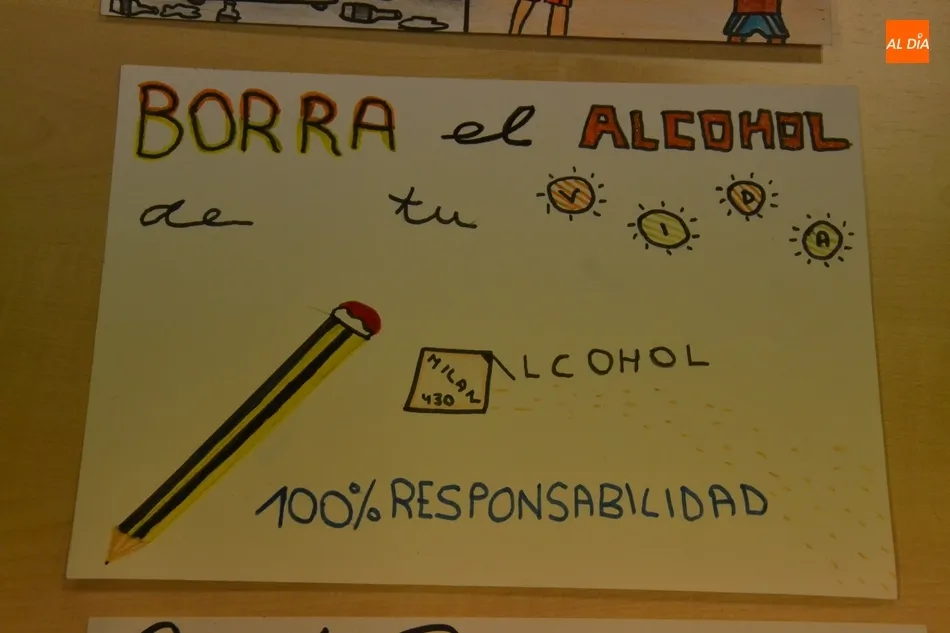 AL DÍA
BORRA el ALCOHOL
de tu VIDA
MILAN
430
ALCOHOL
100% RESPONSABILIDAD